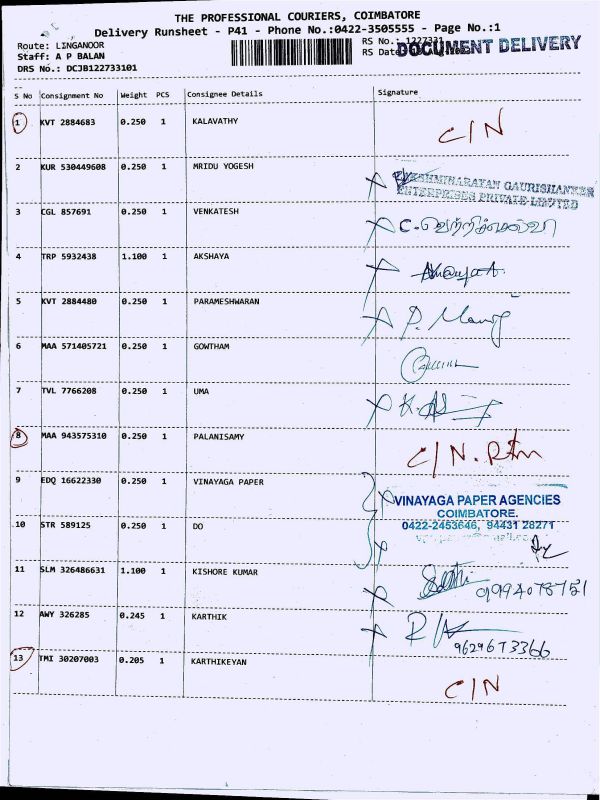 THE PROFESSIONAL COURIERS, COIMBATORE
Delivery Runsheet - P41 - Phone No.:0422-3505555 - Page No.:1
Route: LINGANOOR
RS No.:
Staff: A P BALAN
RS Date
DOCUMENT DELIVERY
DRS No.: DCJB122733101
S No Consignment No Weight PCS Consignee Details Signature
1 KVT 2884683 0.250 1 KALAVATHY C/N
2 KUR 530449608 0.250 1 MRIDU YOGESH
LAKSHMINARAYAN GAURISHANKER
ENTERPRISES PRIVATE LIMITED
3 CGL 857691 0.250 1 VENKATESH C.வெற்றிச்செல்வி
4 TRP 5932438 1.100 1 AKSHAYA Akshaya
5 KVT 2884480 0.250 1 PARAMESHWARAN P.
6 MAA 571405721 0.250 1 GOWTHAM
7 TVL 7766208 0.250 1 UMA
8 MAA 943575310 0.250 1 PALANISAMY C/N. Rtn
9 EDQ 16622330 0.250 1 VINAYAGA PAPER
VINAYAGA PAPER AGENCIES
COIMBATORE.
10 STR 589125 0.250 1 DO 0422-2453646, 94431 28271
11 SLM 326486631 1.100 1 KISHORE KUMAR
12 AWY 326285 0.245 1 KARTHIK
9629673366
13 TMI 30207003 0.205 1 KARTHIKEYAN C/N